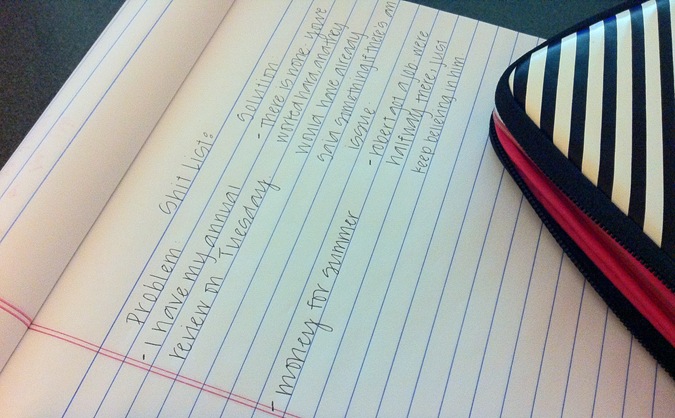 Shit List:
Problem
- I have my annual
review on Tuesday.
- money for summer
Solution
- There is none. You've
worked hard and they
would have already
said something if there's an
issue.
- robert got a job. We're
halfway there. Just
keep believing in him